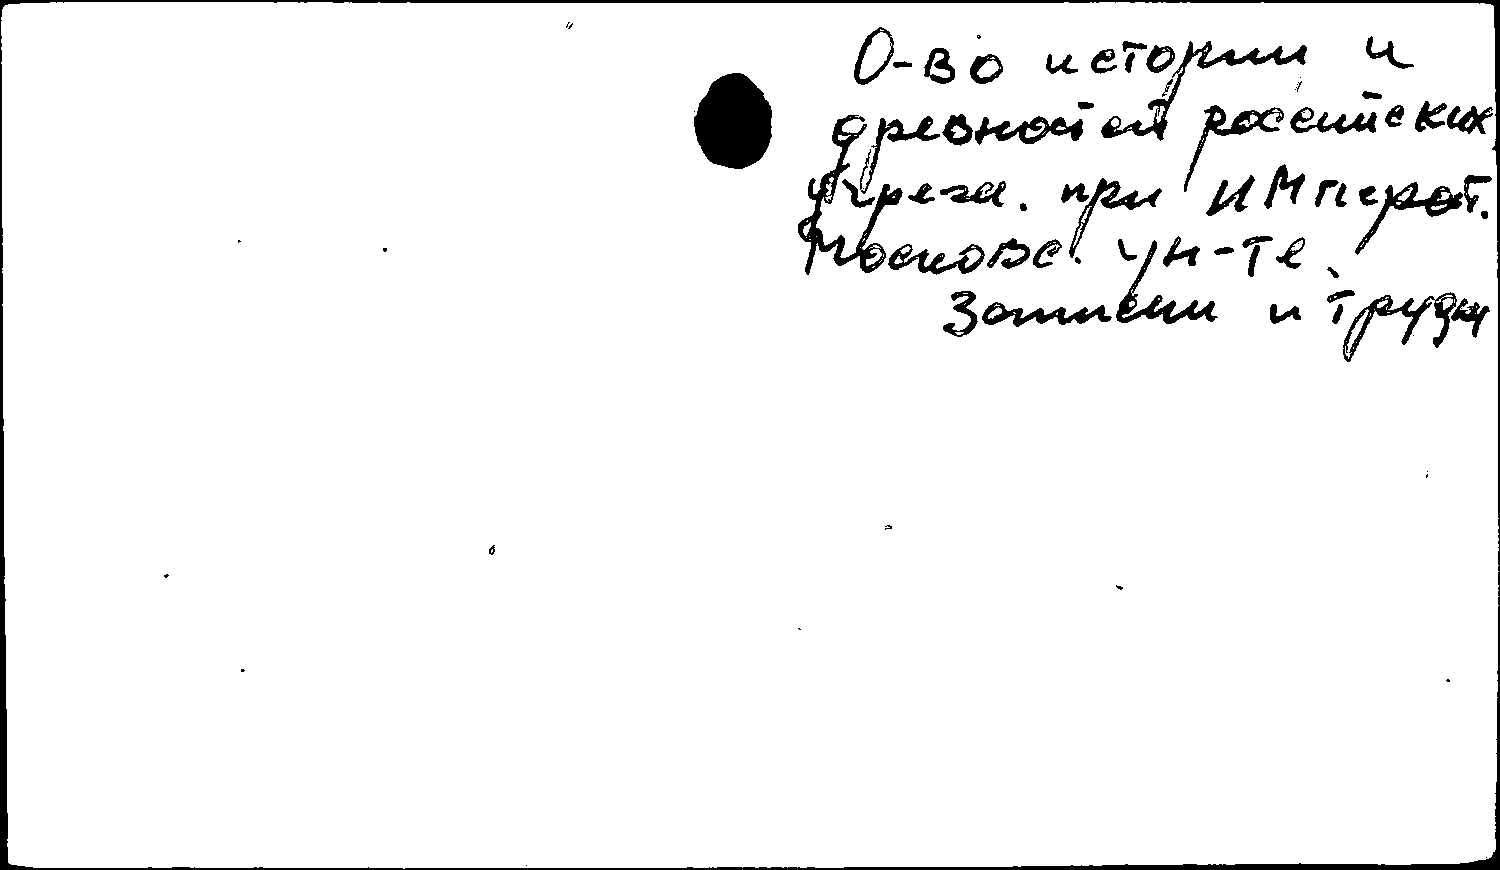 О-во истории и
древностей российских,
учрежд. при Императ.
Московс. ун-те.
Записки и труды